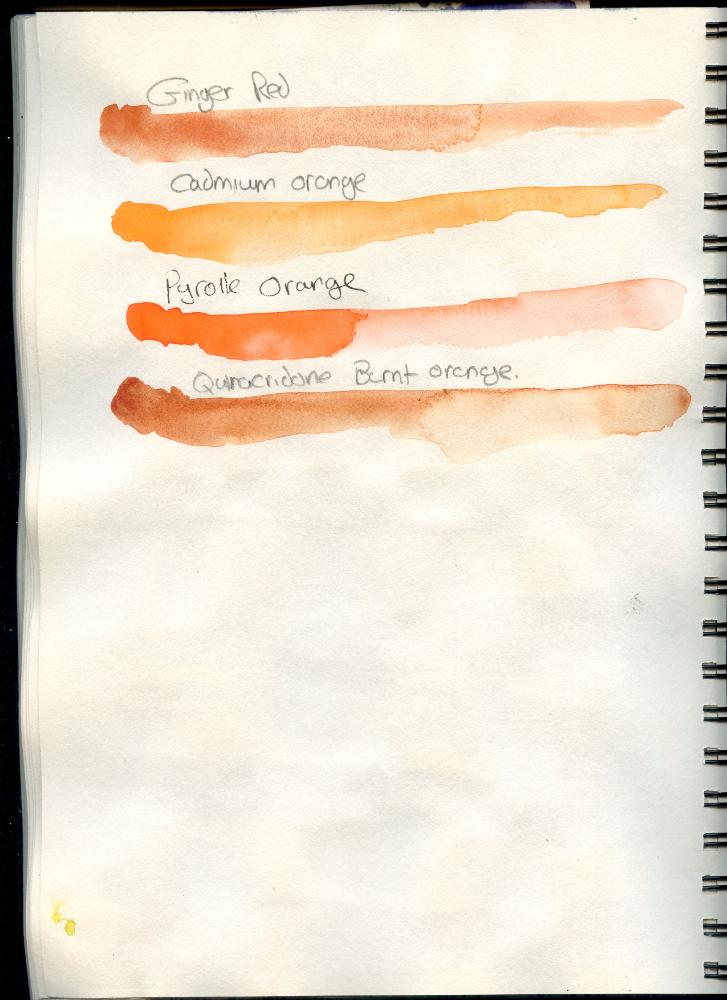 Ginger Red
Cadmium orange
Pyrolle Orange
Quinacridone Burnt orange.